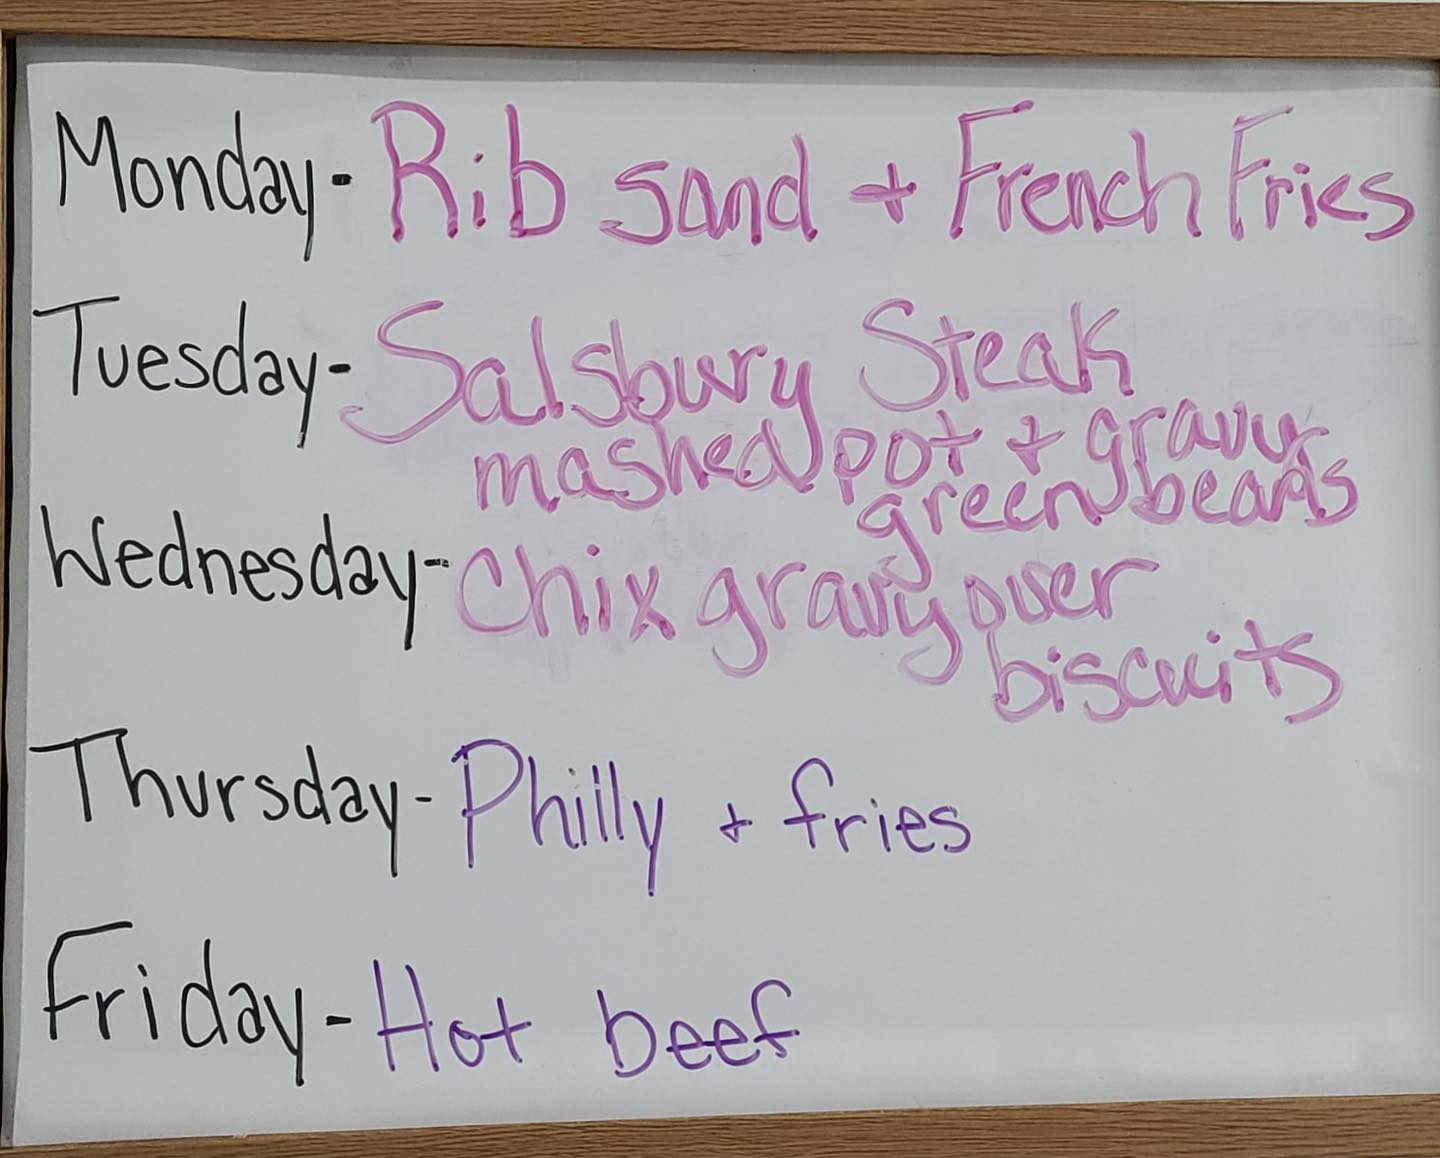 Monday- Rib sand + French Fries
Tuesday- Salsbury Steak
mashed pot + gravy
green beans
Wednesday- Chix gravy over
biscuits
Thursday- Philly + fries
Friday- Hot beef